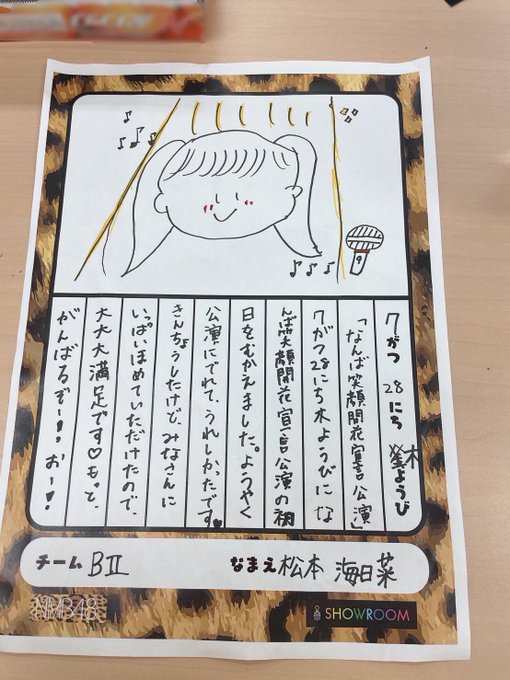 7がつ 28にち 木ようび
「なんば笑顔開花宣言公演」
7がつ28にち木ようびにな
んば笑顔開花宣言公演の初
日をむかえました。ようやく
公演にでれて、うれしかったです♥
きんちょうしたけど、みなさんに
いっぱいほめていただけたので、
大大大満足です♡もっと、
がんばるぞー!おー!
チーム BⅡ
なまえ 松本 海日菜
NMB48
SHOWROOM